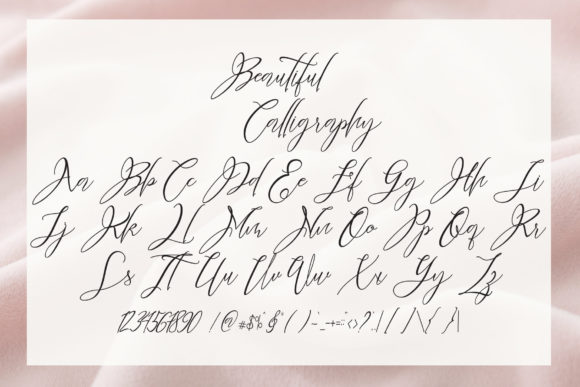 Beautiful
Calligraphy
Aa Bb Cc Dd Ee Ff Gg Hh Ii
Jj Kk Ll Mm Nn Oo Pp Qq Rr
Ss Tt Uu Vv Ww Xx Yy Zz
1234567890 !@#$%^&*()-_+=:;<>?,.[]/\{}|